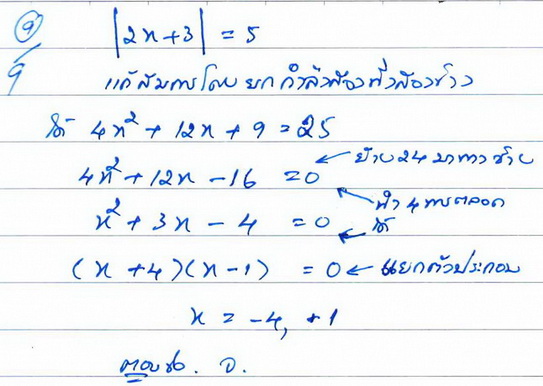 9
|2x+3| = 5
9
แก้สมการโดยยกกำลังสองทั้งสองข้าง
ได้ 4x² + 12x + 9 = 25
ย้าย 24 มาทางซ้าย
4x² + 12x - 16 = 0
นำ 4 หารตลอด
x² + 3x - 4 = 0 ได้
(x + 4)(x - 1) = 0 ← แยกตัวประกอบ
x = -4, +1
ตอบข้อ. ง.